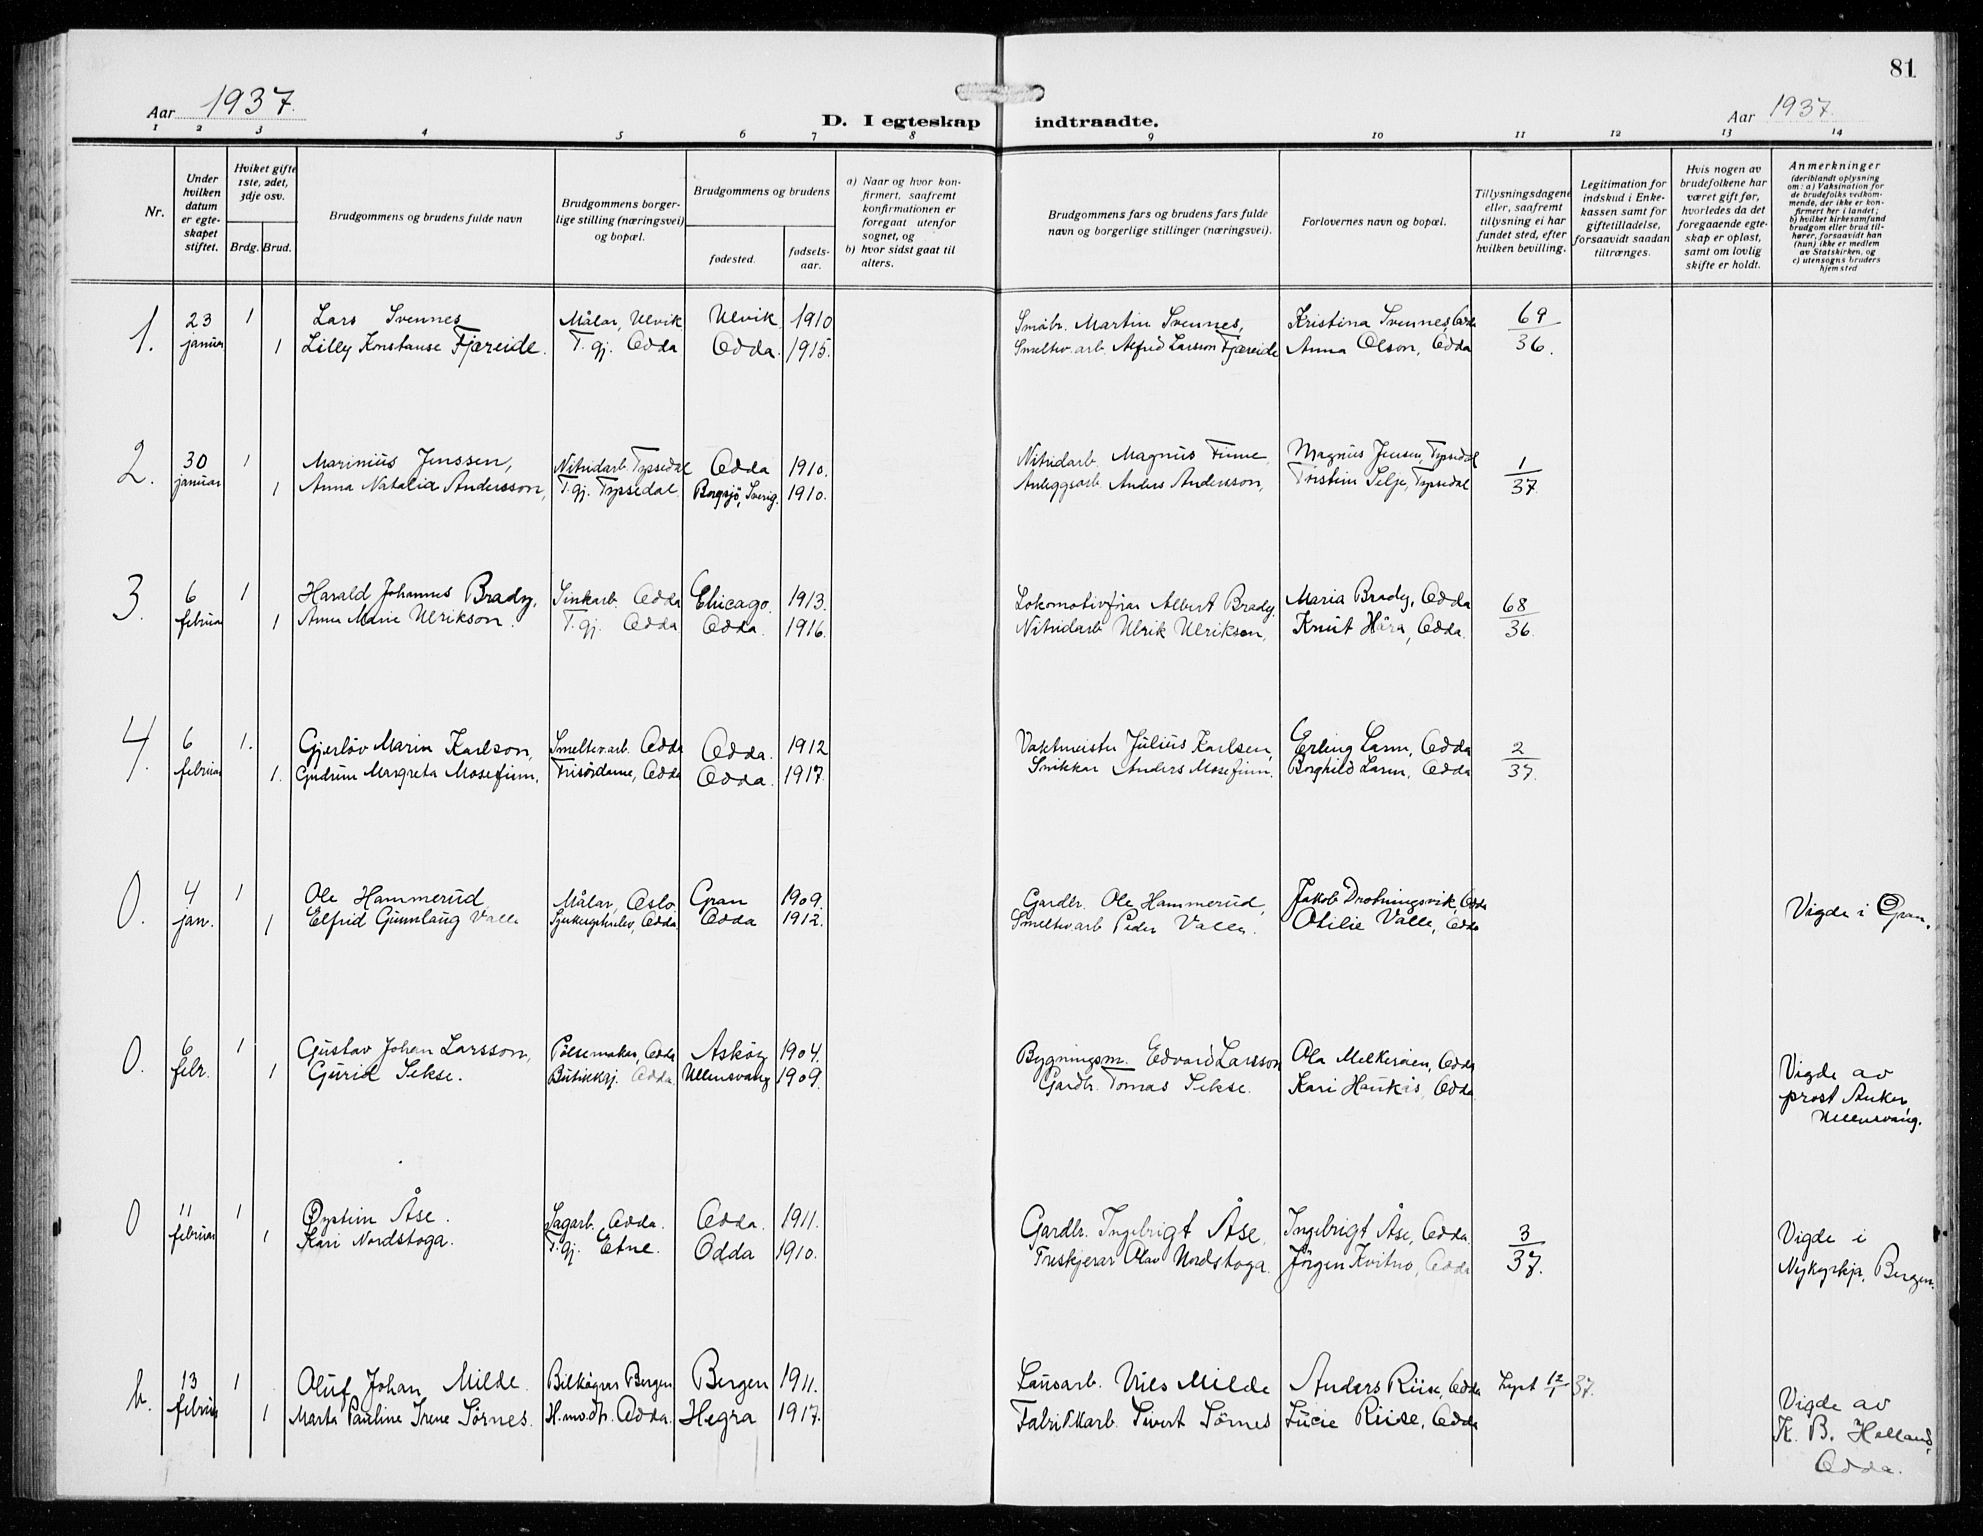 81
Aar 1937. D. I egteskap indtraadte. Aar 1937.
1 2 3 4 5 6 7 8 9 10 11 12 13 14
Nr.
Under hvilken datum er egteskapet stiftet.
Hvilket gifte 1ste, 2det, 3dje osv.
Brdg. Brud.
Brudgommens og brudens fulde navn
Brudgommens borgerlige stilling (næringsvei) og bopæl.
Brudgommens og brudens
fødested. fødselsaar.
a) Naar og hvor konfirmert, saafremt konfirmationen er foregaat utenfor sognet, og
b) hvor sidst gaat til alters.
Brudgommens fars og brudens fars fulde navn og borgerlige stillinger (næringsvei).
Forlovernes navn og bopæl.
Tillysningsdagene eller, saafremt tillysning ei har fundet sted, efter hvilken bevilling.
Legitimation for indskud i Enkekassen samt for giftetilladelse, forsaavidt saadan tiltrænges.
Hvis nogen av brudefolkene har været gift før, hvorledes da det foregaaende egteskap er opløst, samt om lovlig skifte er holdt.
Anmerkninger (deriblandt oplysning om: a) Vaksination for de brudefolks vedkommende, der ikke er konfirmert her i landet; b) hvilket kirkesamfund brudgom eller brud tilhører, forsaavidt han (hun) ikke er medlem av Statskirken, og c) utensogns bruders hjemsted
1. 23 januar 1 Lars Svennes Målar, Ulvik Ulvik 1910 Småbr. Martin Svennes, Kristina Svennes, Odda 69/36.
1 Lilly Konstanse Fjæreide. T.gj. Odda Odda. 1915. Smeltev.arb. Alfred Larsson Fjæreide Anna Olson, Odda
2. 30 januar 1 Marinius Jenssen, Nitridarb. Tyssedal Odda 1910. Nitridarb. Magnus Magnus Jensen, Tyssedal 1/37.
1 Anna Natalia Andersson, T.gj. Tyssedal. Borgsjö, Sverig. 1910. Anleggsarb. Anders Andersson, Selje, Tyssedal
3. 6 februar 1 Harald Johannes Brady, Sinkarb. Odda Chicago. 1913. Lokomotivförar Albert Brady, Maria Brady, Odda 68/36.
1 Anna Marie Ulrikson. T.gj. Odda Odda. 1916. Nitridarb. Ulrik Ulrikson, Knut Håra, Odda.
4. 6 februar 1. Gjerløv Marin Karlson, Smeltev.arb. Odda Odda. 1912 Vaktmeister Julius Karlsen, Erling Larm, Odda 2/37.
1. Gudrun Margreta Mosefinn. Frisördame, Odda Odda. 1917. Snikkar Anders Mosefinn. Borghild Larm, Odda
0. 4 jan. 1 Ole Hammerud, Målar, Oslo Gran 1909. Gardbr. Ole Hammerud, Jakob Drotningsvik, Odda
1 Elfrid Gunnlaug Valle Odda Odda 1912. Smeltev.arb Peder Valle. Otilie Valle, Odda
Vigde i Gran.
0. 6 febr. 1 Gustav Johan Larsson, Pölsemaker, Odda Asköy 1904. Bygningsm. Edvard Larsson Ola Odda
1 Gurid Sekse. Butikkgj. Odda. Ullensvang 1909. Gardbr. Tomas Sekse. Kari Haukås, Odda
Vigde av
prost Anker,
Ullensvang.
0 11 februar 1 Öystein Åse. Sagarb. Odda. Odda. 1911. Gardbr. Ingebrigt Åse, Ingebrigt Åse, Odda. 3/37.
1 Kari Nordstoga. T.gj. Etne. Odda 1910. Treskjerar Olav Nordstoga. Jörgen Kvitno, Odda
Vigde i
Nykyrkja, Bergen.
b. 13 februar 1 Oluf Johan Milde. Bilkøyrar Bergen Bergen 1911. Lausarb. Nils Milde Anders Riise, Odda Lyst 12/1 37.
1 Marta Pauline Irene Sörnes. Odda. Hegra 1917. Fabrikkarb. Sivert Sörnes Lucie Riise, Odda
Vigde av
K. B. Holland,
Odda.